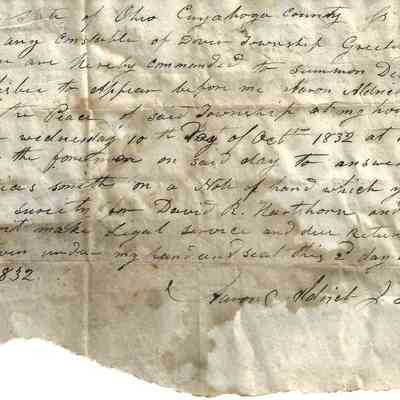 State of Ohio Cuyahoga County ss
any Constable of Dover Township Greeti
are hereby commanded to summon De
to appear before me Aaron Aldric
the Peace of said Township at my ho
wednesday 10th Day of Octr 1832 at
the forenoon on said day to answe
smith on a Note of hand which
surety for David R. Harthorn and
make Legal service and due Return
under my hand and seal this 2 day
1832
Aaron Aldrich J